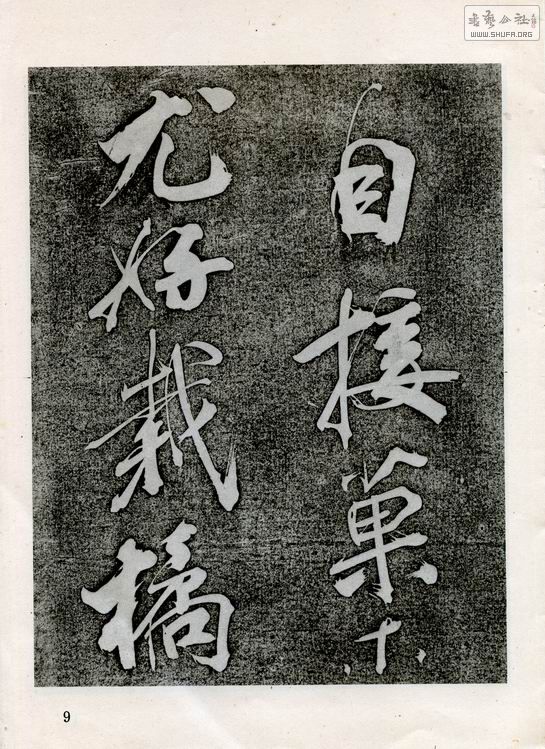 書藝公社
WWW.SHUFA.ORG
自接菓木
尤好栽橘
9